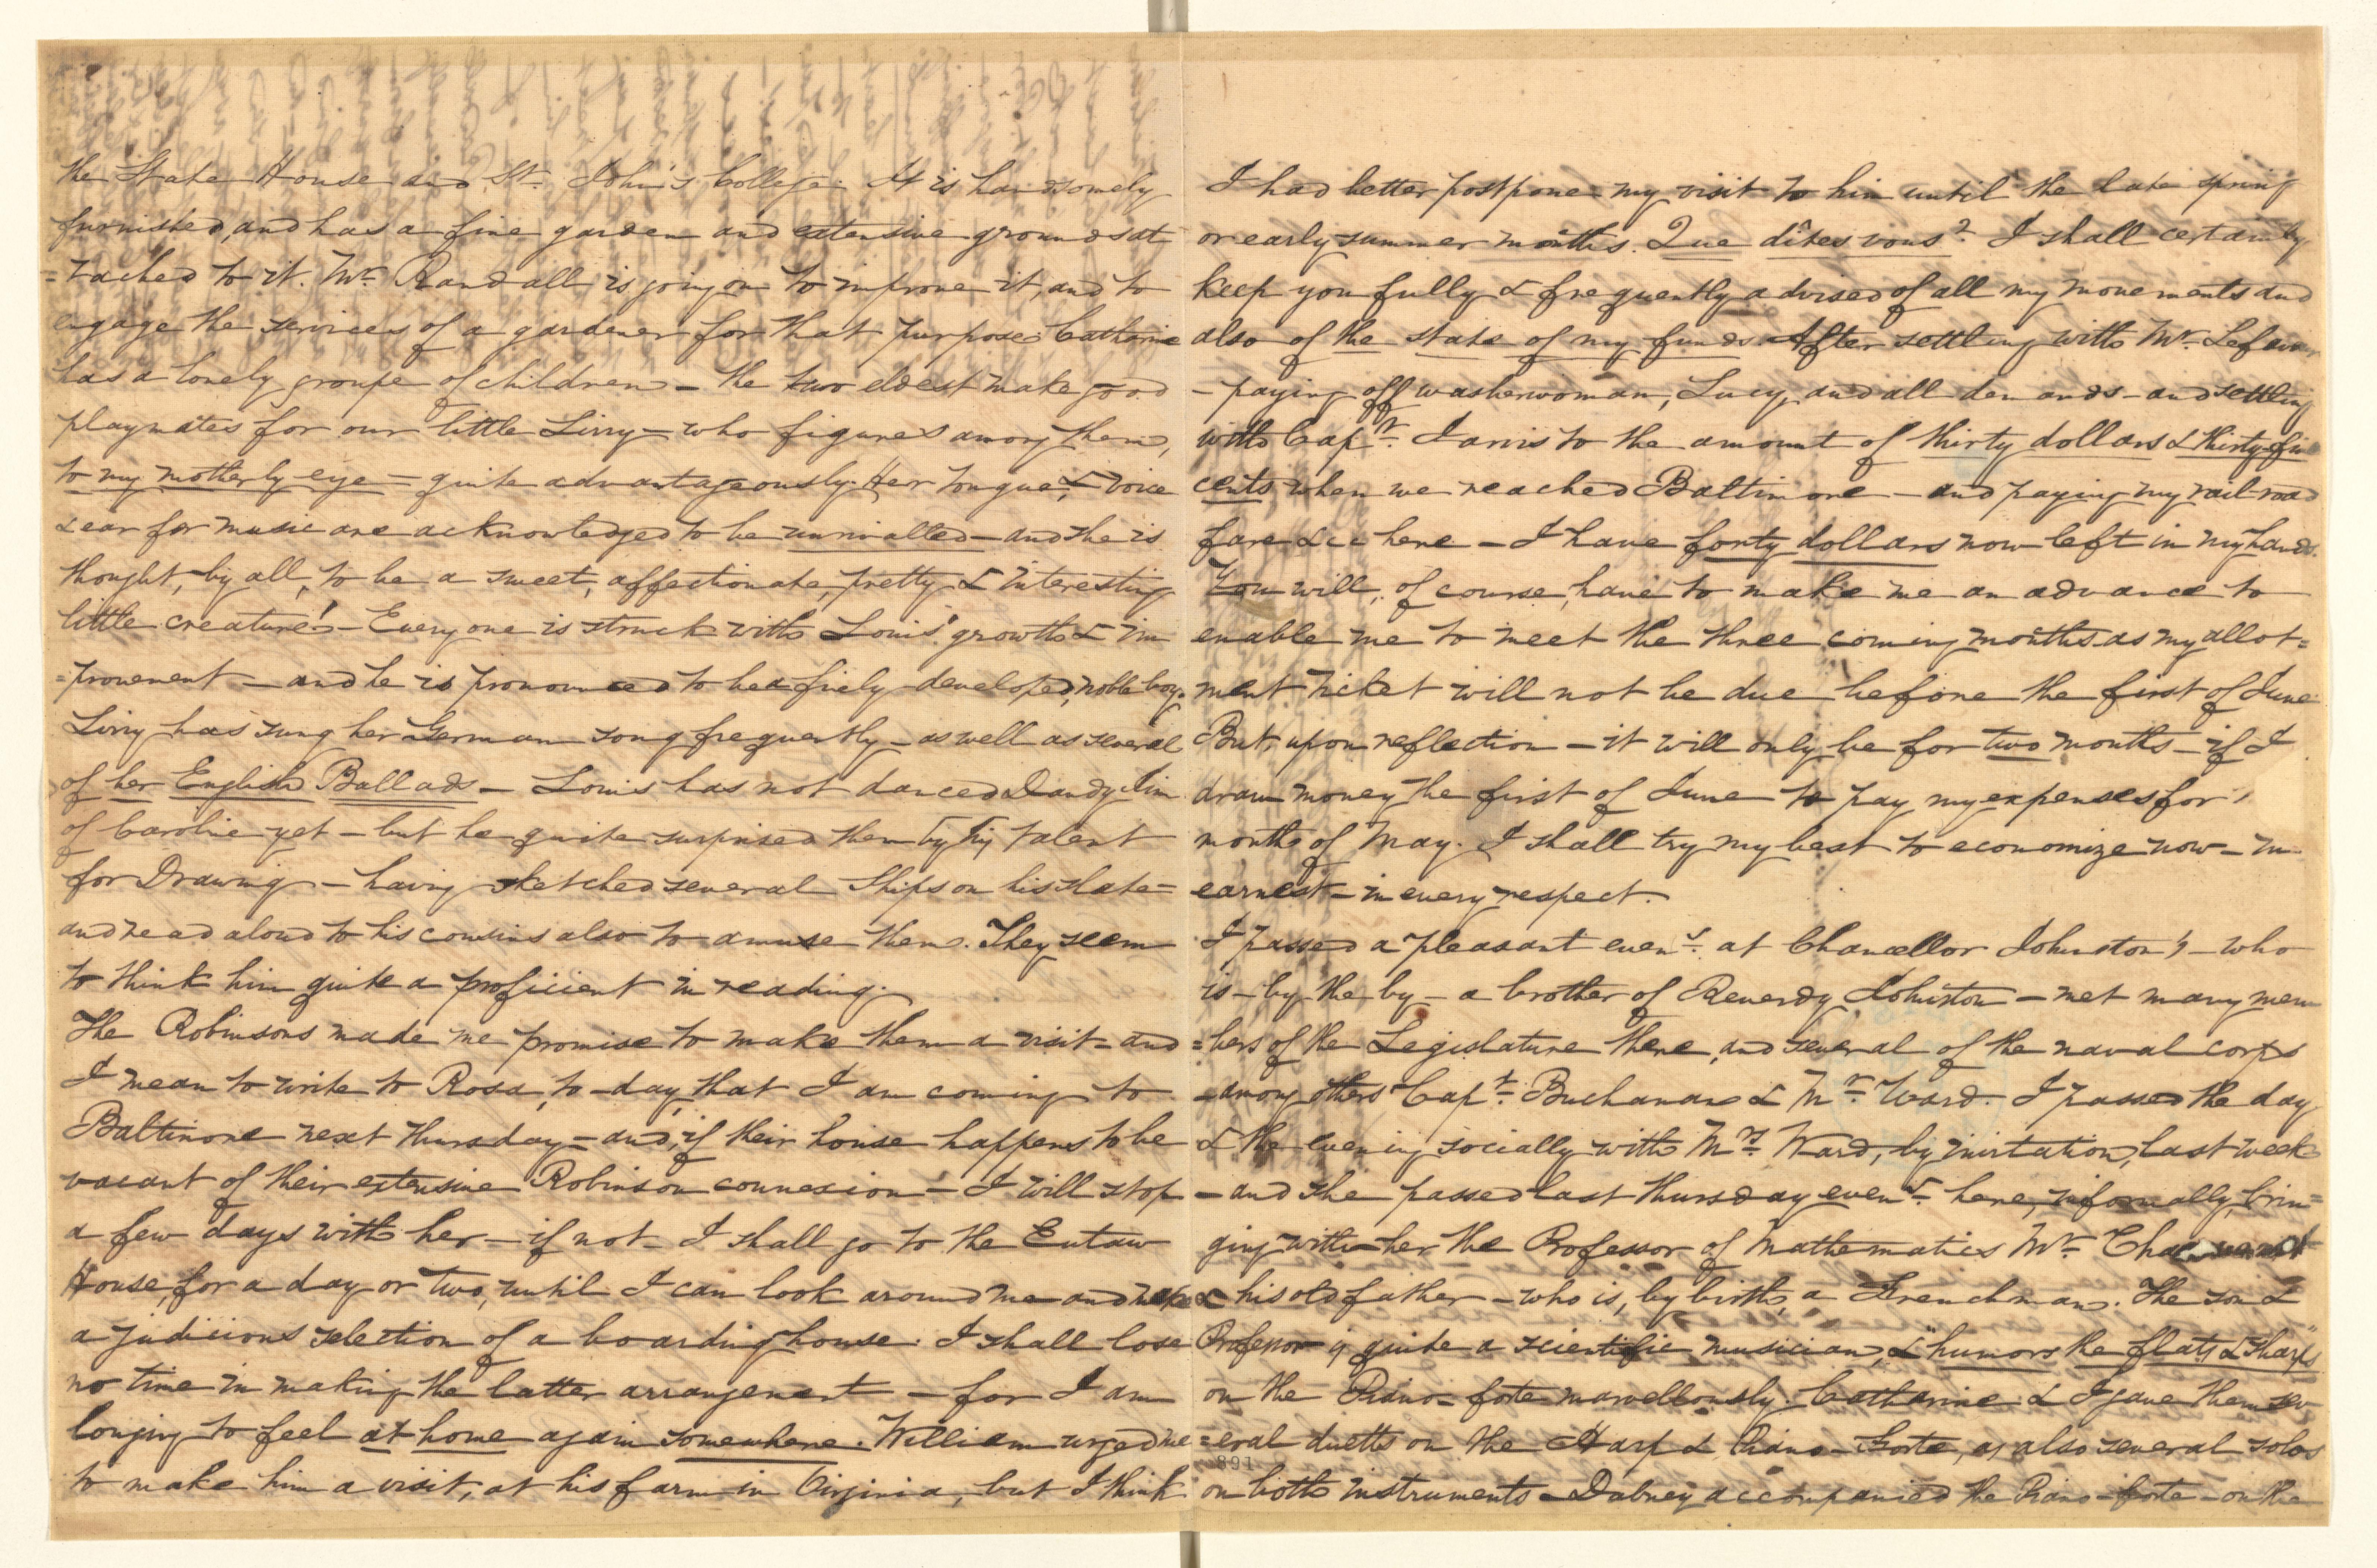 the State House and St. John's College. It is handsomely
furnished, and has a fine garden and extensive grounds at
=tached to it. Mr. Randall is going on to improve it, and to
engage the services of a gardener for that purpose. Catharine
has a lovely groupe of children – the two eldest make good
playmates for our little Lizzy – who figures among them,
to my motherly eye – quite advantageously. Her tongue, & voice
& ear for music are acknowledged to be unrivalled – and she is
thought, by all, to be a sweet, affectionate, pretty & interesting
little creature! – Every one is struck with Louis' growth & im
=provement – and he is pronounced to be a finely developed, noble boy.
Lizzy has sung her German song frequently – as well as several
of her English Ballads – Louis has not danced Dandy Jim
of Caroline yet – but he quite surprised them by his talent
for Drawing – having sketched several Ships on his slate =
and read aloud to his cousins also to amuse them. They seem
to think him quite a proficient in reading.
The Robinsons made me promise to make them a visit – and
I mean to write to Rosa, to-day, that I am coming to
Baltimore next Thursday – and, if their house happens to be
vacant of their extensive Robinson connexion – I will stop
a few days with her – if not – I shall go to the Eutaw
House, for a day or two, until I can look around me and make
a judicious selection of a boarding house. I shall lose
no time in making the latter arrangement – for I am
longing to feel at home again somewhere. William urged me
to make him a visit, at his farm in Virginia, but I think
I had better postpone my visit to him until the late spring
or early summer months. Que dites vous? I shall certainly
keep you fully & frequently advised of all my movements and
also of the state of my funds. After settling with Mr.
– paying off washerwoman, Lucy, and all demands – and settling
with Capt. Jarvis to the amount of thirty dollars & thirty-five
cents, when we reached Baltimore – and paying my rail-road
fare &c here – I have forty dollars now left in my hands.
You will, of course, have to make me an advance to
enable me to meet the three coming months – as my allot=
ment ticket will not be due before the first of June.
But, upon reflection – it will only be for two months – if I
draw money the first of June to pay my expenses for
month of May. I shall try my best to economize now – in
earnest – in every respect.
I passed a pleasant eveng. at Chancellor Johnston's – who
is – by the by – a brother of Reverdy Johnston – met many mem
=bers of the Legislature there, and several of the naval corps
– among others Capt. Buchanan & Mr. Ward. I passed the day
& the evening socially with Mrs. Ward, by invitation, last week
– and she passed last Thursday eveng. here, informally, brin=
ging with her the Professor of Mathematics Mr.
& his old father – who is, by birth, a Frenchman. The son &
Professor is quite a scientific musician, & "humors the flats & sharps"
on the Piano-forte marvellously. Catharine & I gave them sev
=eral duetts on the Harp & Piano-Forte, as also several solos
891
on both instruments – Dabney accompanied the Piano-forte – on the